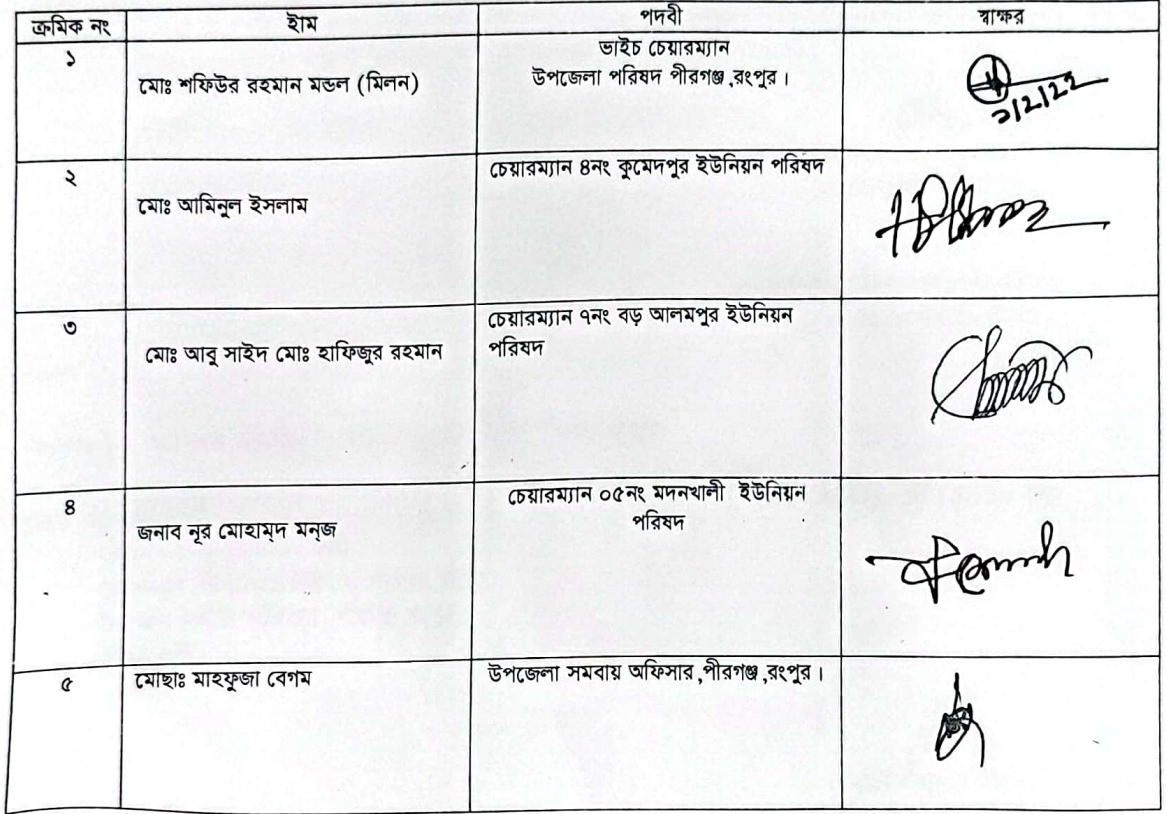 ক্রমিক নং ইাম পদবী স্বাক্ষর
১ মোঃ শফিউর রহমান মন্ডল (মিলন) ভাইচ চেয়ারম্যান
উপজেলা পরিষদ পীরগঞ্জ,রংপুর।
২ মোঃ আমিনুল ইসলাম চেয়ারম্যান ৪নং কুমেদপুর ইউনিয়ন পরিষদ
৩ মোঃ আবু সাইদ মোঃ হাফিজুর রহমান চেয়ারম্যান ৭নং বড় আলমপুর ইউনিয়ন
পরিষদ
৪ জনাব নূর মোহাম্দ মন্জ চেয়ারম্যান ০৫নং মদনখালী ইউনিয়ন
পরিষদ
৫ মোছাঃ মাহফুজা বেগম উপজেলা সমবায় অফিসার,পীরগঞ্জ,রংপুর।